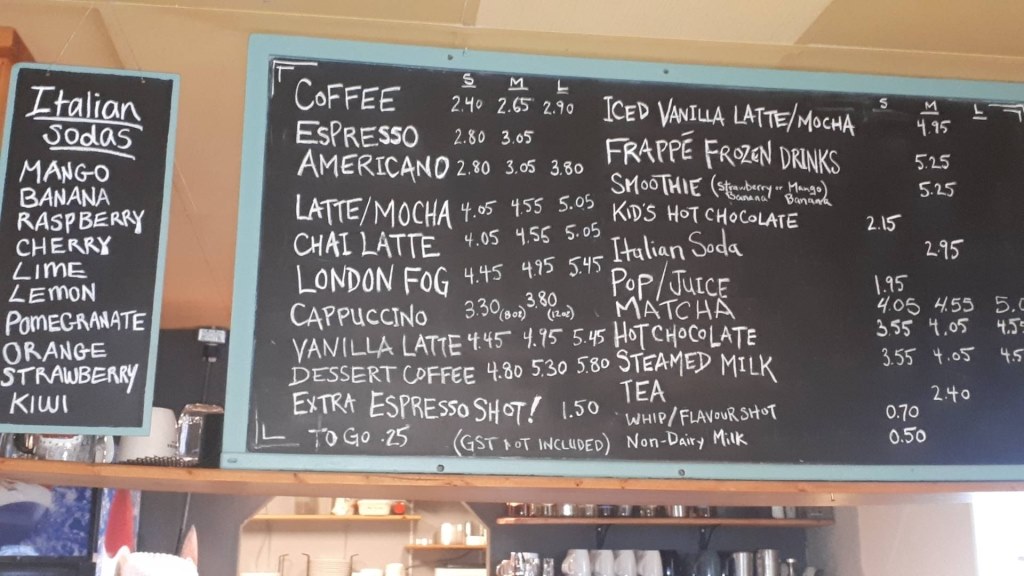 Italian
sodas
MANGO
BANANA
RASPBERRY
CHERRY
LIME
LEMON
POMEGRANATE
ORANGE
STRAWBERRY
KIWI
S M L
COFFEE 2.40 2.65 2.90
ESPRESSO 2.80 3.05
AMERICANO 2.80 3.05 3.80
LATTE/MOCHA 4.05 4.55 5.05
CHAI LATTE 4.05 4.55 5.05
LONDON FOG 4.45 4.95 5.45
CAPPUCCINO 3.30 (8oz) 3.80 (12oz)
VANILLA LATTE 4.45 4.95 5.45
DESSERT COFFEE 4.80 5.30 5.80
EXTRA ESPRESSO SHOT! 1.50
TO GO .25 (GST NOT INCLUDED)
S M L
ICED VANILLA LATTE/MOCHA 4.95
FRAPPÉ FROZEN DRINKS 5.25
SMOOTHIE (Strawberry or Mango) 5.25
Banana Banana
KID'S HOT CHOCOLATE 2.15
Italian Soda 2.95
POP/JUICE 1.95
MATCHA 4.05 4.55
HOT CHOCOLATE 3.55 4.05
STEAMED MILK 3.55 4.05
TEA 2.40
WHIP/FLAVOUR SHOT 0.70
NON-DAIRY MILK 0.50